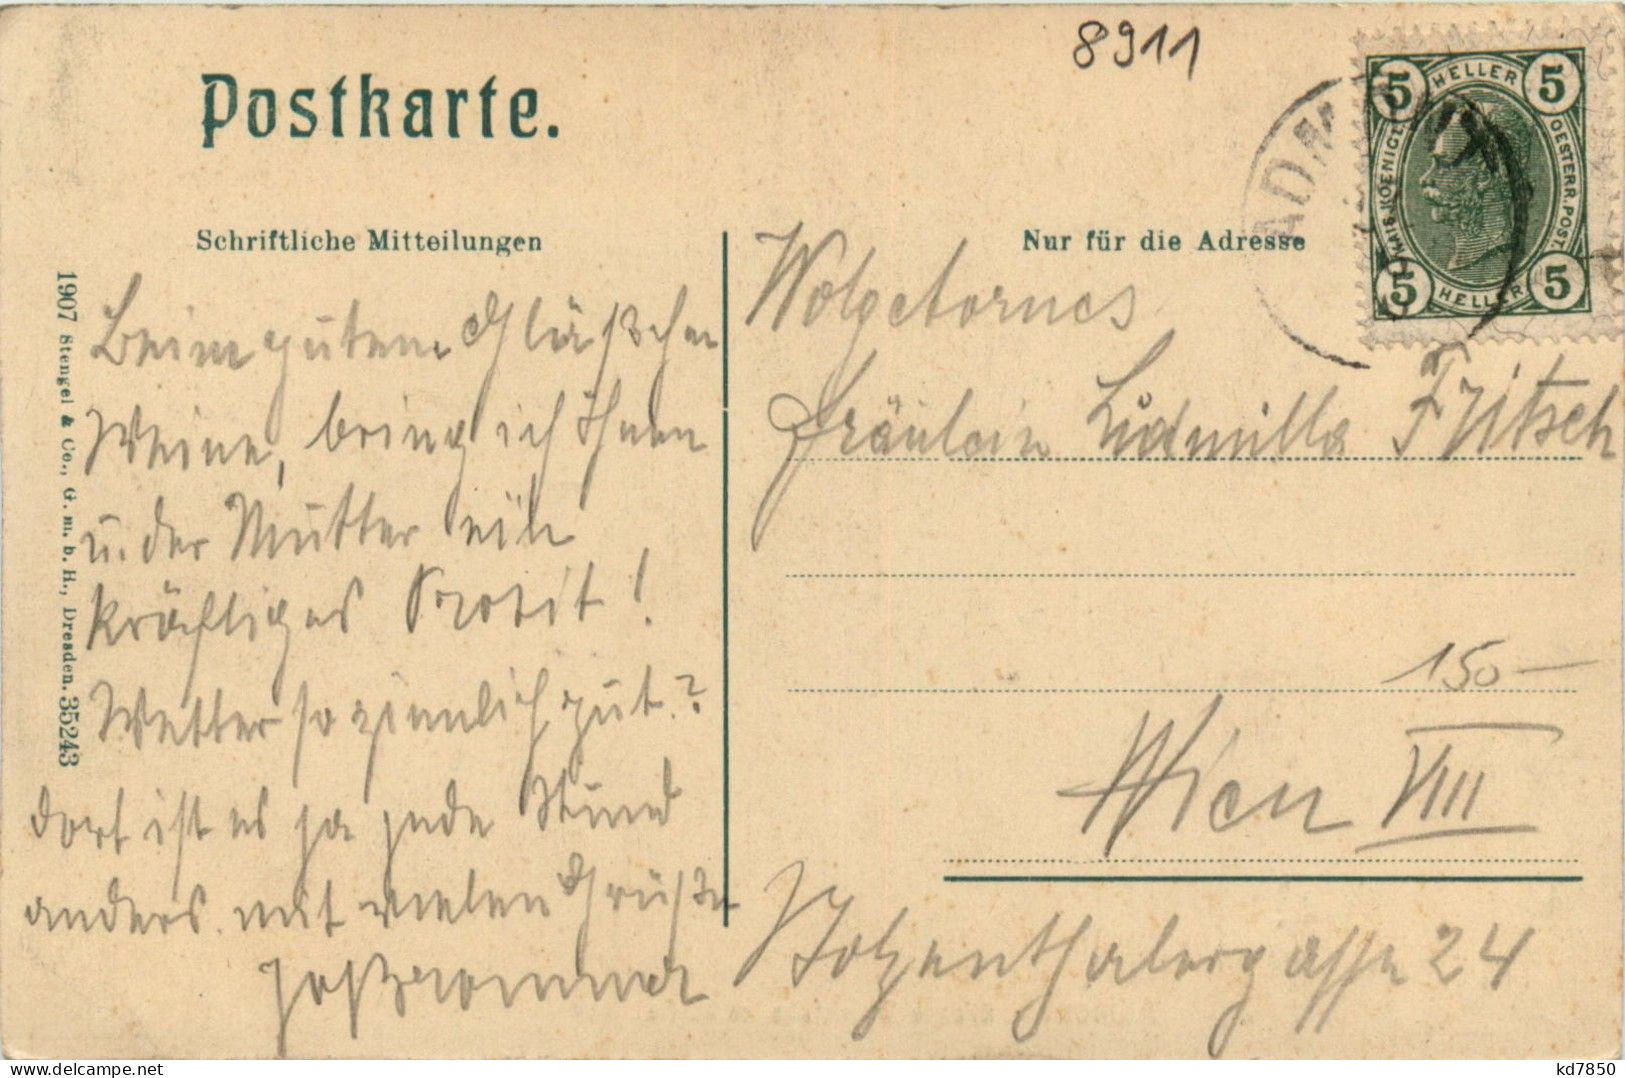 8911
Postkarte.
5 HELLER 5
KAIS. KOENIGL. OESTERR. POST.
5 HELLER 5
ADM
Schriftliche Mitteilungen
Nur für die Adresse
1907 Stengel & Co., G. m. b. H., Dresden. 35243
Beim guten Gläßchen
Weine, bring ich Ihnen
u. der Mutter ein
kräftiges Prosit!
Wetter so ziemlich gut?
dort ist es ja jede Stund
anders. mit vielen Grüße
Wolgebornes
Fräulein Ludmilla Fritsch
150—
Wien VIII
Stolzenthalergasse 24
kd7850